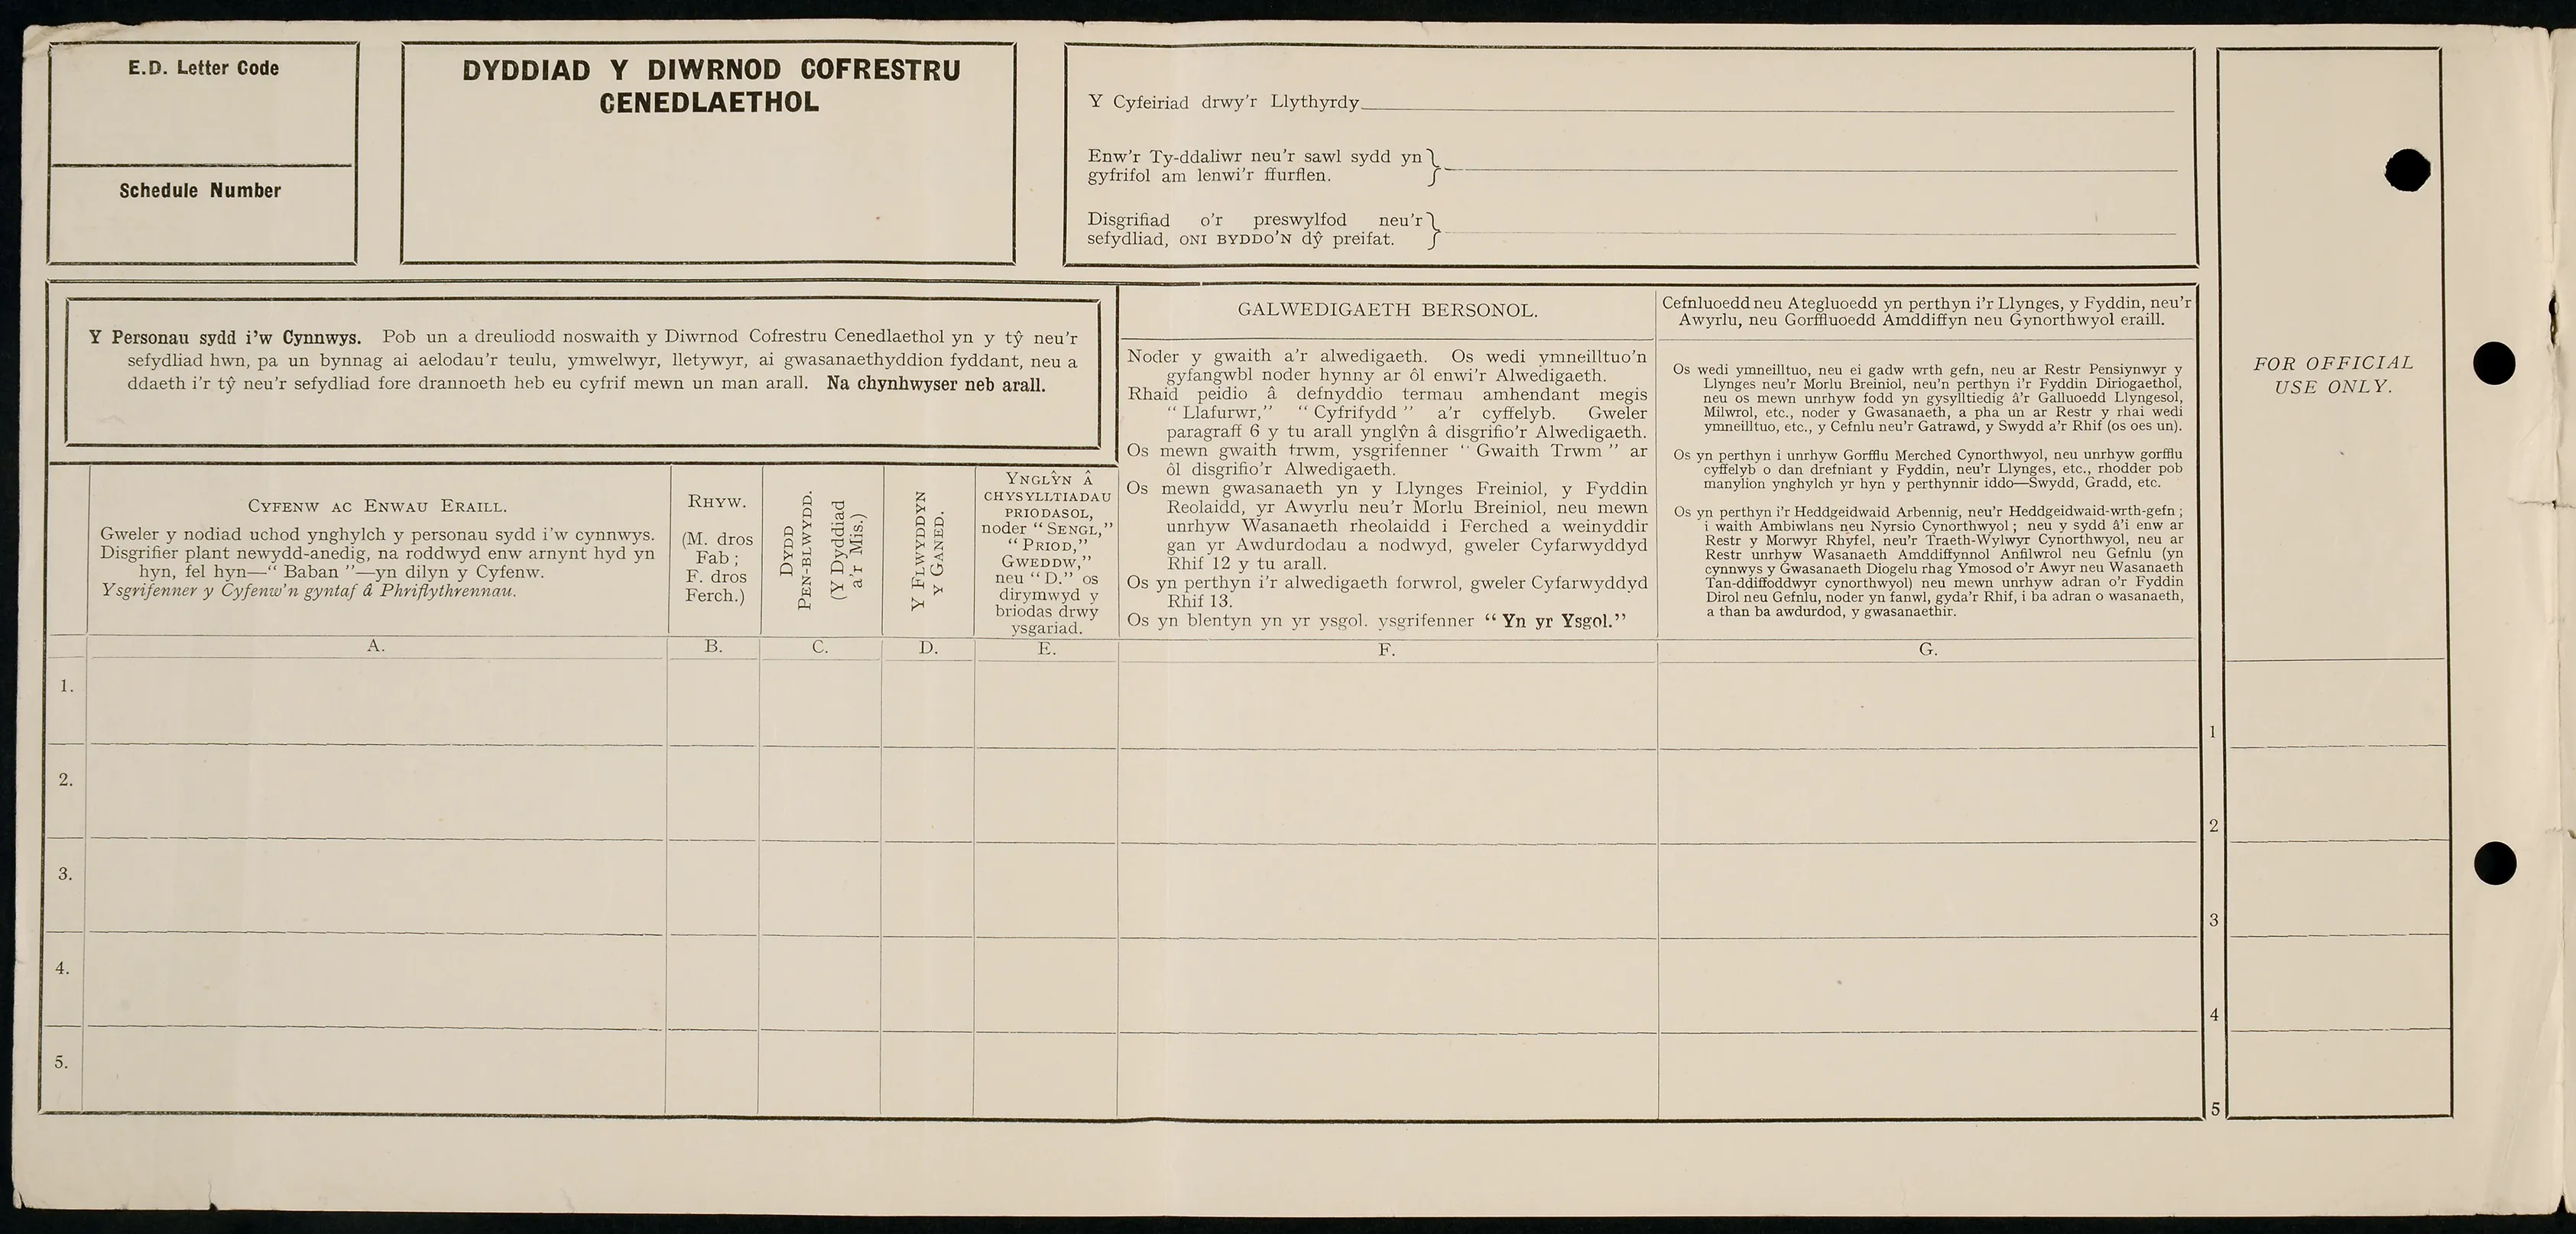 E.D. Letter Code
Schedule Number
DYDDIAD Y DIWRNOD COFRESTRU
CENEDLAETHOL
Y Cyfeiriad drwy'r Llythyrdy
Enw'r Ty-ddaliwr neu'r sawl sydd yn
gyfrifol am lenwi'r ffurflen.
Disgrifiad o'r preswylfod neu'r
sefydliad, ONI BYDDO'N dŷ preifat.
Y Personau sydd i'w Cynnwys. Pob un a dreuliodd noswaith y Diwrnod Cofrestru Cenedlaethol yn y tŷ neu'r
sefydliad hwn, pa un bynnag ai aelodau'r teulu, ymwelwyr, lletywyr, ai gwasanaethyddion fyddant, neu a
ddaeth i'r tŷ neu'r sefydliad fore drannoeth heb eu cyfrif mewn un man arall. Na chynhwyser neb arall.
CYFENW AC ENWAU ERAILL.
Gweler y nodiad uchod ynghylch y personau sydd i'w cynnwys.
Disgrifier plant newydd-anedig, na roddwyd enw arnynt hyd yn
hyn, fel hyn—“ Baban ”—yn dilyn y Cyfenw.
Ysgrifenner y Cyfenw'n gyntaf â Phriflythrennau.
RHYW.
(M. dros
Fab ;
F. dros
Ferch.)
DYDD
PEN-BLWYDD.
(Y Dyddiad
a'r Mis.)
Y FLWYDDYN
Y GANED.
YNGLŶN Â
CHYSYLLTIADAU
PRIODASOL,
noder “ SENGL,”
“ PRIOD,”
GWEDDW,”
neu “ D.” os
dirymwyd y
briodas drwy
ysgariad.
GALWEDIGAETH BERSONOL.
Noder y gwaith a'r alwedigaeth. Os wedi ymneilltuo'n
gyfangwbl noder hynny ar ôl enwi'r Alwedigaeth.
Rhaid peidio â defnyddio termau amhendant megis
“ Llafurwr,” “ Cyfrifydd ” a'r cyffelyb. Gweler
paragraff 6 y tu arall ynglŷn â disgrifio'r Alwedigaeth.
Os mewn gwaith trwm, ysgrifenner “ Gwaith Trwm ” ar
ôl disgrifio'r Alwedigaeth.
Os mewn gwasanaeth yn y Llynges Freiniol, y Fyddin
Reolaidd, yr Awyrlu neu'r Morlu Breiniol, neu mewn
unrhyw Wasanaeth rheolaidd i Ferched a weinyddir
gan yr Awdurdodau a nodwyd, gweler Cyfarwyddyd
Rhif 12 y tu arall.
Os yn perthyn i'r alwedigaeth forwrol, gweler Cyfarwyddyd
Rhif 13.
Os yn blentyn yn yr ysgol. ysgrifenner “ Yn yr Ysgol.”
Cefnluoedd neu Ategluoedd yn perthyn i'r Llynges, y Fyddin, neu'r
Awyrlu, neu Gorffluoedd Amddiffyn neu Gynorthwyol eraill.
Os wedi ymneilltuo, neu ei gadw wrth gefn, neu ar Restr Pensiynwyr y
Llynges neu'r Morlu Breiniol, neu'n perthyn i'r Fyddin Diriogaethol,
neu os mewn unrhyw fodd yn gysylltiedig â'r Galluoedd Llyngesol,
Milwrol, etc., noder y Gwasanaeth, a pha un ar Restr y rhai wedi
ymneilltuo, etc., y Cefnlu neu'r Gatrawd, y Swydd a'r Rhif (os oes un).
Os yn perthyn i unrhyw Gorfflu Merched Cynorthwyol, neu unrhyw gorfflu
cyffelyb o dan drefniant y Fyddin, neu'r Llynges, etc., rhodder pob
manylion ynghylch yr hyn y perthynnir iddo—Swydd, Gradd, etc.
Os yn perthyn i'r Heddgeidwaid Arbennig, neu'r Heddgeidwaid-wrth-gefn ;
i waith Ambiwlans neu Nyrsio Cynorthwyol ; neu y sydd â'i enw ar
Restr y Morwyr Rhyfel, neu'r Traeth-Wylwyr Cynorthwyol, neu ar
Restr unrhyw Wasanaeth Amddiffynnol Anfilwrol neu Gefnlu (yn
cynnwys y Gwasanaeth Diogelu rhag Ymosod o'r Awyr neu Wasanaeth
Tan-ddiffoddwyr cynorthwyol) neu mewn unrhyw adran o'r Fyddin
Dirol neu Gefnlu, noder yn fanwl, gyda'r Rhif, i ba adran o wasanaeth,
a than ba awdurdod, y gwasanaethir.
FOR OFFICIAL
USE ONLY.
A. B. C. D. E. F. G.
1.
1
2.
2
3.
3
4.
4
5.
5